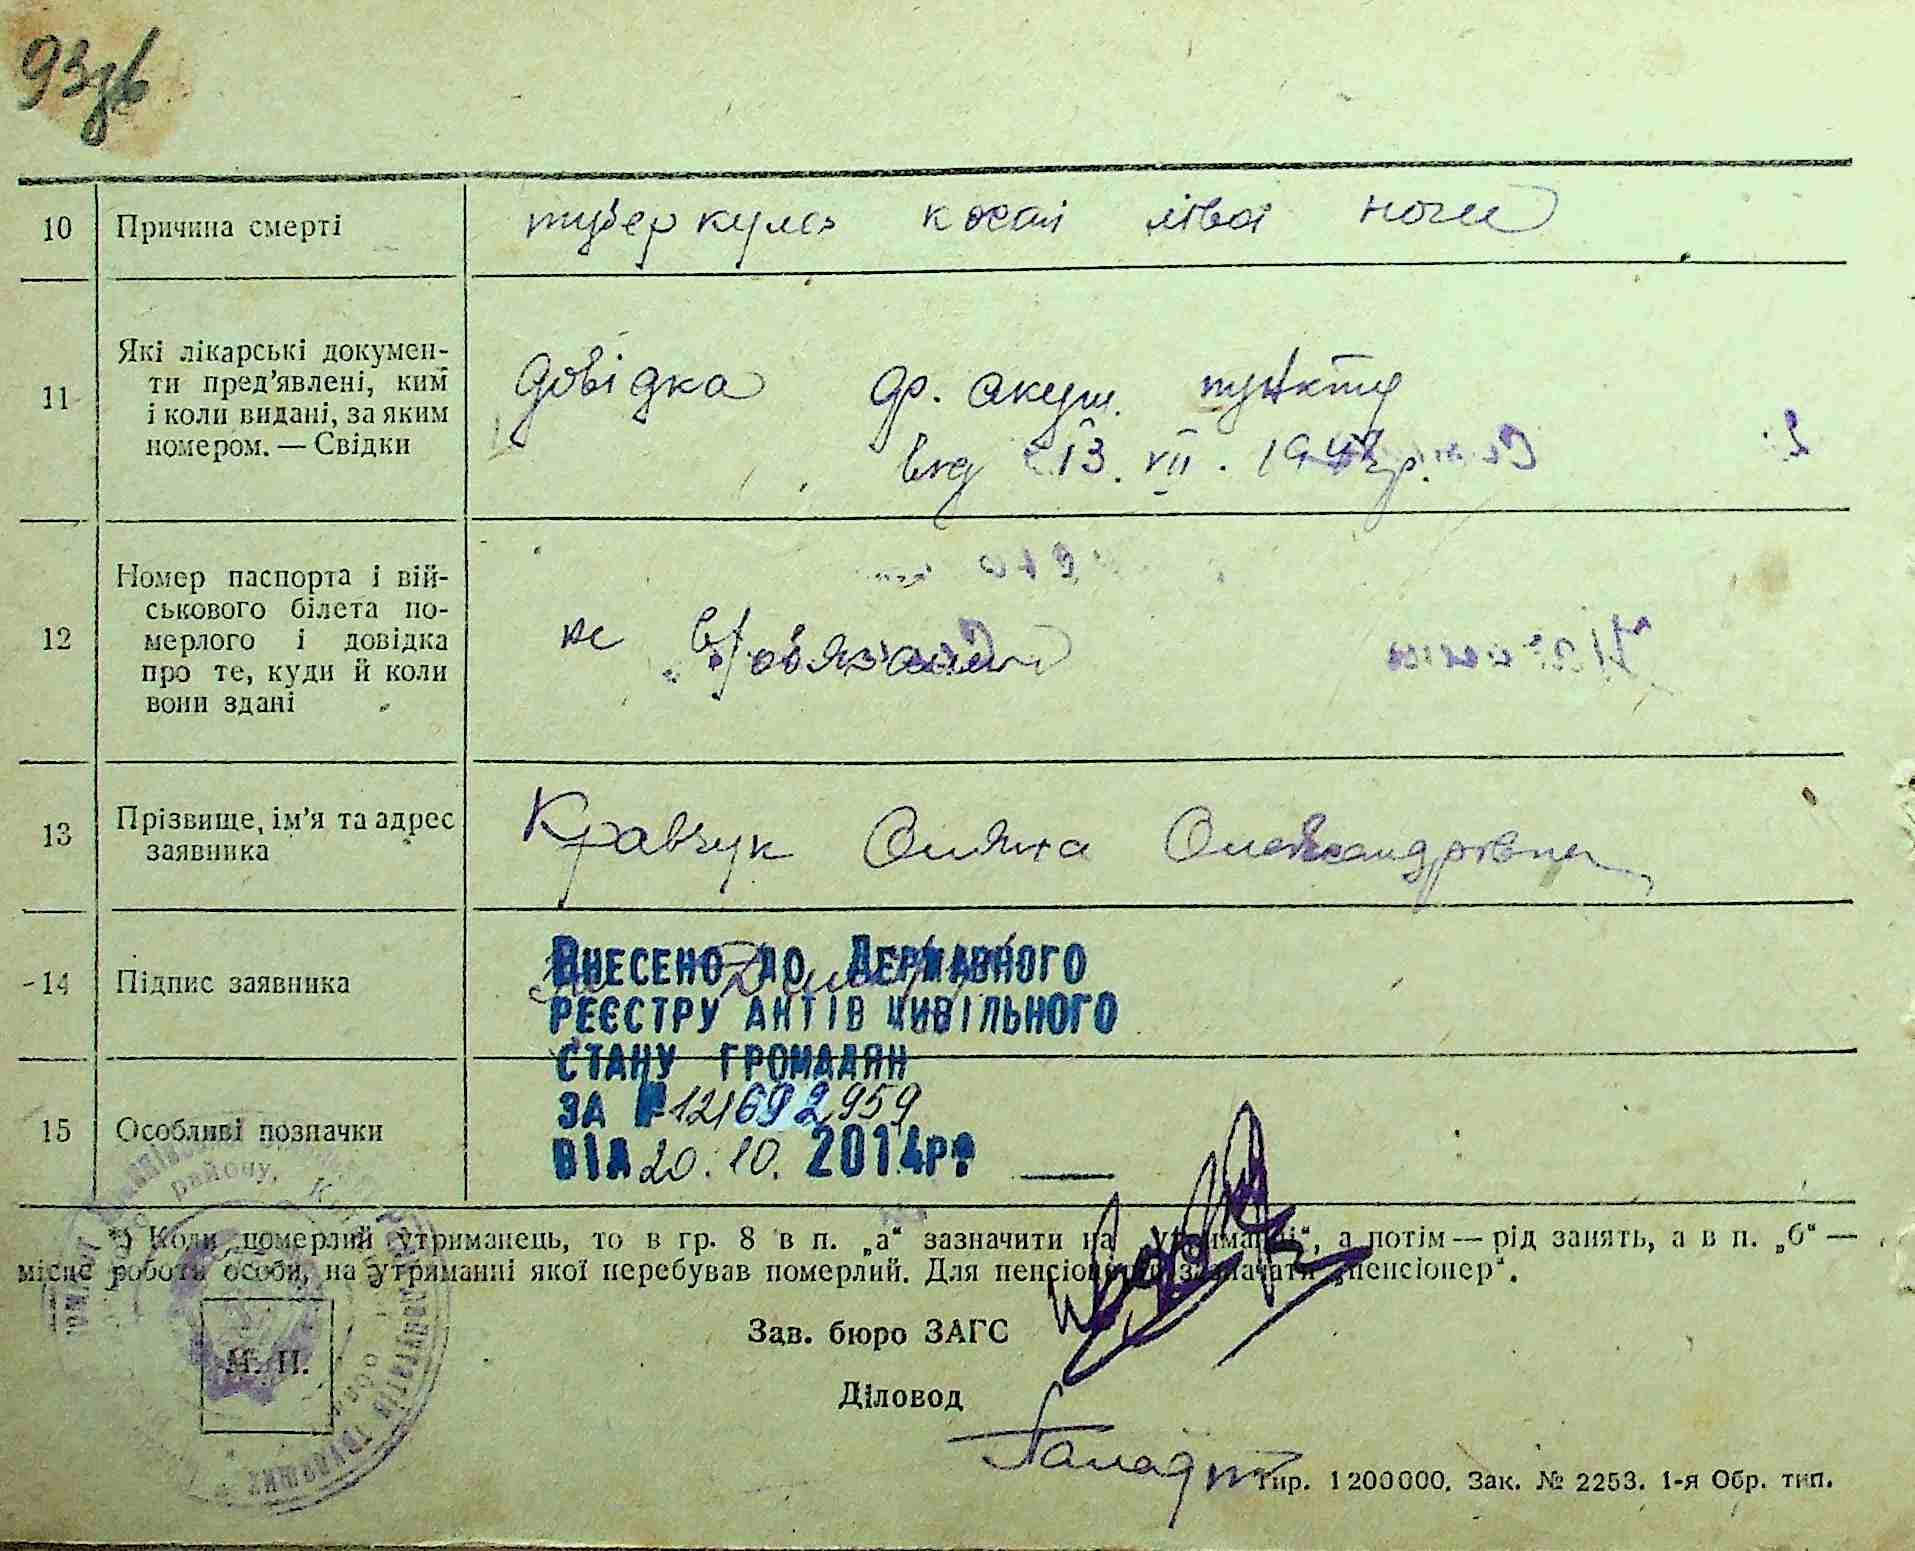 10 Причина смерті туберкульоз кості лівої ноги
11 Які лікарські докумен-
ти пред'явлені, ким
і коли видані, за яким
номером. — Свідки
Довідка ф. акуш. пункту
від 13. VII. 194 р.
12 Номер паспорта і вій-
ськового білета по-
мерлого і довідка
про те, куди й коли
вони здані
не
13 Прізвище, ім'я та адрес
заявника
Кравчук Олександрівна
14 Підпис заявника
15 Особливі позначки
Внесено до Державного
реєстру актів цивільного
стану громадян
за № 121692959
від 20.10. 2014р.
*) Коли померлий утриманець, то в гр. 8 в п. „а“ зазначити на „утриманні“, а потім — рід занять, а в п. „б“ —
місце роботи особи, на утриманні якої перебував померлий. Для пенсіонерів зазначати „пенсіонер“.
району,
М. П.
Зав. бюро ЗАГС
Діловод
Тир. 1200000. Зак. № 2253. 1-я Обр. тип.